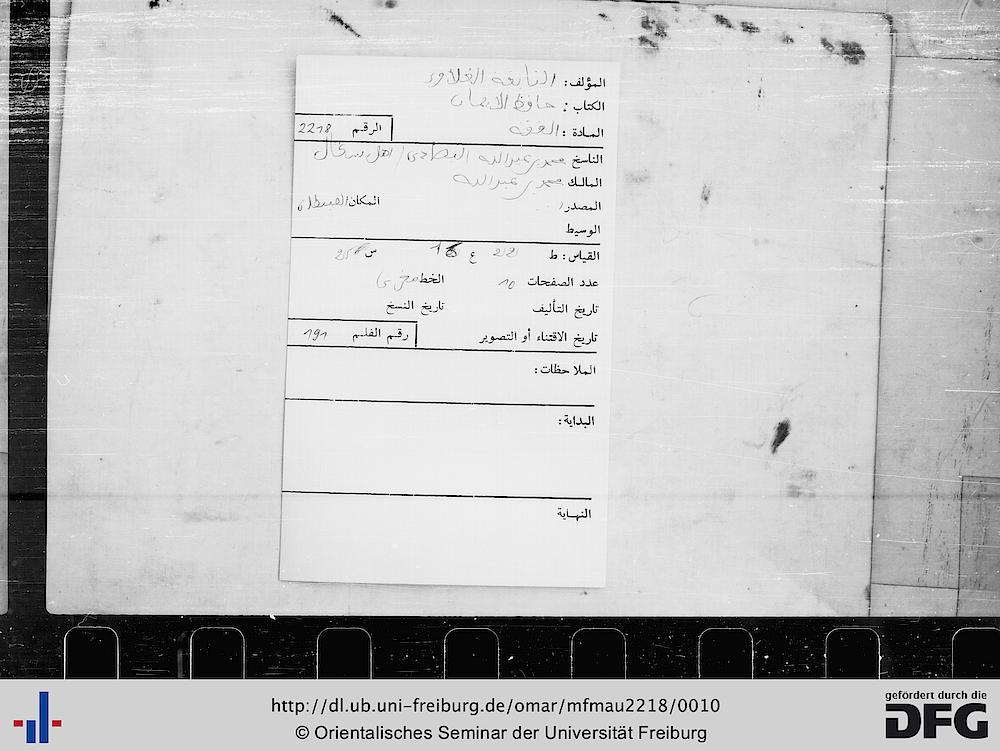 المؤلف: النابغه الغلاوي
الكتاب: حافظ الايمان
المادة: الفقه
الرقم 2218
الناسخ محمد بن عبدالله اهل
المالك محمد بن عبدالله
المصدر
المكان
الوسيط
القياس: ط 22 ع س
عدد الصفحات 10 الخط مغربي
تاريخ التأليف تاريخ النسخ
تاريخ الاقتناء أو التصوير رقم الفلم 191
الملاحظات:
البداية:
النهاية
http://dl.ub.uni-freiburg.de/omar/mfmau2218/0010
© Orientalisches Seminar der Universität Freiburg
gefördert durch die
DFG